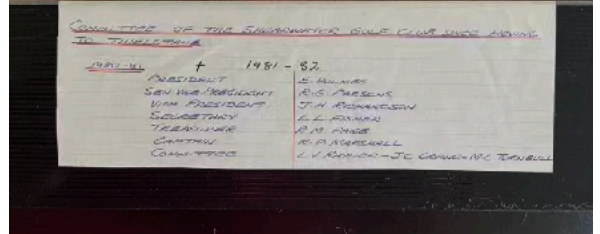 COMMITTEE OF THE SHEARWATER GOLF CLUB SINCE MOVING
TO
1980-81 + 1981-82
PRESIDENT E. HOLMES
SEN. VICE PRESIDENT R.G. PARSONS
VICE PRESIDENT J.H. RICHARDSON
SECRETARY L.L. FISHER
TREASURER R.M. PAGE
CAPTAIN R.P. MARSHALL
COMMITTEE L.V. - J.C. - M.C. TURNBULL